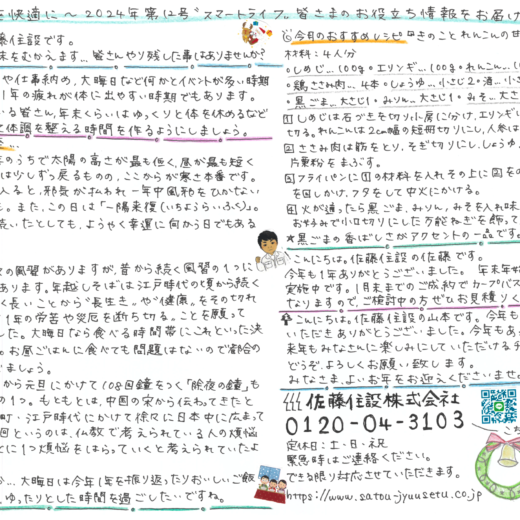 を快適に～2024年第12号 "スマートライフ" 皆さまのお役立ち情報をお届け
藤住設です。
末をむかえます…皆さんやり残した事はありませんか？
や仕事納め、大晦日など何かとイベントが多い時期
1年の疲れが体に出やすい時期でもあります。
いる皆さん、年末くらいはゆっくりと体を休めるなど
体調を整える時間を作るようにしましょう。
のうちで太陽の高さが最も低く、昼が最も短く
は少しずつ戻るものの、ここからが寒さ本番です。
入ると、邪気が払われ一年中風邪をひかない
。また、この日は「一陽来復(いちようらいふく)」。
続いたとしても、ようやく幸運に向かう日でもある
の風習がありますが、昔から続く風習の1つに
あります。年越しそばは江戸時代の頃から続く
く長いことから"長生き"や"健康"、をその切れ
1年の労苦や災厄を断ち切る。ことを願って
した。大晦日なら食べる時間帯にこれといった決
。お昼ごはんに食べても問題はないので都合の
でましょう。
から元旦にかけて108回鐘をつく「除夜の鐘」も
の1つ。もともとは、中国の宋から伝わってきたと
町・江戸時代にかけて徐々に日本中に広まって
回というのは、仏教で考えられている人の煩悩
とに1つ煩悩をはらっていくと考えられていたよ
…大晦日は今年1年を振り返ったりおいしいご飯
、ゆったりとした時間を過ごしたいですね。
今月のおすすめレシピ きのことれんこんの甘
材料：4人分
・しめじ…100g・エリンギ…100g・れんこん…
・鶏ささみ肉…4本・しょうゆ…小さじ2・酒…小さ
・黒ごま…大さじ1・みりん…大さじ1・みそ…大さ
1 しめじは石づきを切り小房に分け、エリンギは
切る。れんこんは2cm幅の短冊切りにし、人参は
2 ささみ肉は筋をとり、そぎ切りにし、しょうゆ、
片栗粉をまぶす。
3 フライパンに1の材料を入れその上に2をの
を回しかけ、フタをして中火にかける。
4 火が通ったら黒ごま、みりん、みそを入れ味
お好みで小口切りにした万能ねぎを飾って
★黒ごまの香ばしさがアクセントの一品です。
こんにちは。佐藤住設の佐藤です。
今年も1年ありがとうございました。年末年始
実施中です。1月末までのご成約でカープバス
なりますので、ご検討中の方ぜひお見積りく
こんにちは。佐藤住設の山本です。今年も
いただきありがとうございました。今年もあっ
来年もみなさんに楽しみにしていただけるチ
どうぞ、よろしくお願い致します。
みなさま、よいお年をお迎えくださいませ
佐藤住設株式会社
0120-04-3103
定休日：土・日・祝
緊急時はご連絡ください。
できる限り対応させていただきます。
https://www.satou-jyuusetu.co.jp